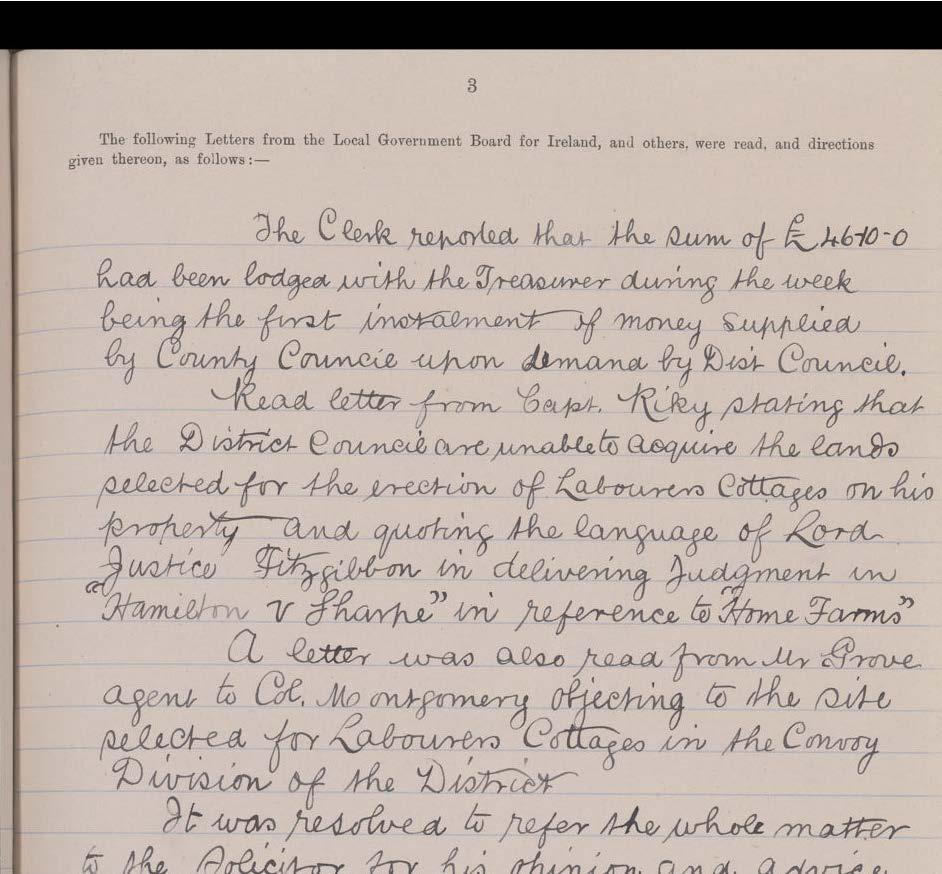 3
The following Letters from the Local Government Board for Ireland, and others, were read, and directions
given thereon, as follows:—
The Clerk reported that the sum of £
had been lodged with the Treasurer during the week
being the first instalment of money supplied
by County Council upon demand by Dist Council.
Read letter from Capt. Riky stating that
the District Council are unable to acquire the lands
selected for the erection of Labourers Cottages on his
property and quoting the language of Lord
Justice Fitzgibbon in delivering Judgment in
"Hamilton v Sharpe" in reference to "Home Farms"
A letter was also read from Mr Grove
agent to Col. Montgomery objecting to the site
selected for Labourers Cottages in the Convoy
Division of the District
It was resolved to refer the whole matter
to the Solicitor for his opinion and advice